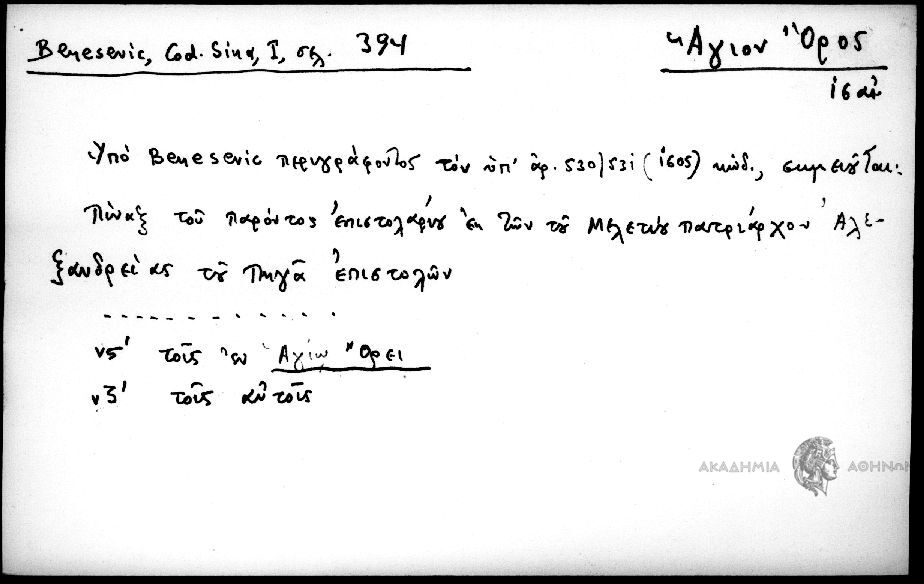 Benesevic, Cod. Sina, I, σελ. 394
Ἅγιον Ὄρος
Ὑπὸ Benesevic περιγράφοντος τὸν ὑπ' ἀρ. 530/531 (1605) κώδ., σημειοῦται:
Πίναξ τοῦ παρόντος ἐπιστολαρίου ἐκ τῶν τοῦ Μελετίου πατριάρχου Ἀλε-
ξανδρείας τοῦ Πηγᾶ ἐπιστολῶν
. . . . . . . . . . . . .
νς' τοῖς ἐν Ἁγίῳ Ὄρει
νζ' τοῖς αὐτοῖς
ΑΚΑΔΗΜΙΑ ΑΘΗΝΩΝ